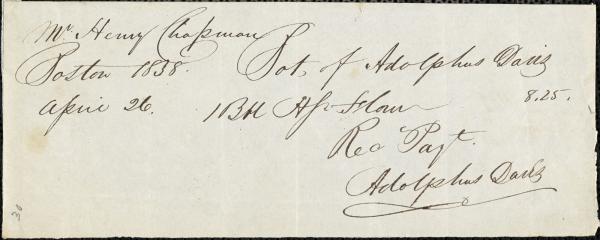 Mr. Henry Chapman
Boston 1838. Bot. of Adolphus Davis
April 26. 1 Bbl Flour 8.25.
Rec Payt.
Adolphus Davis
30